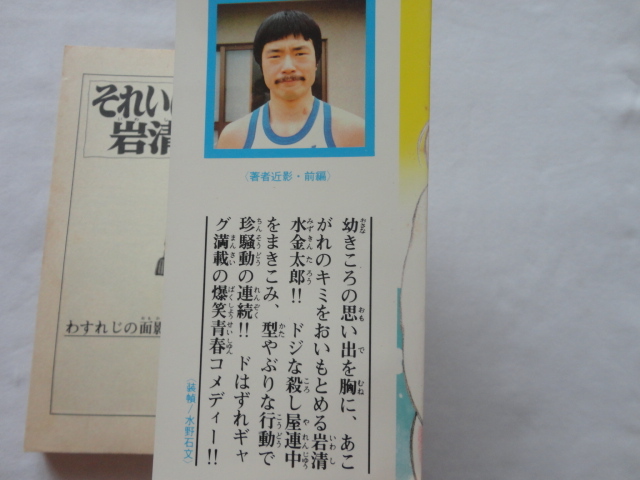 それい
岩清
わすれじの面影
〈著者近影・前編〉
幼きころの思い出を胸に、あこ
がれのキミをおいもとめる岩清
水金太郎!! ドジな殺し屋連中
をまきこみ、型やぶりな行動で
珍騒動の連続!! ドはずれギャ
グ満載の爆笑青春コメディー!!
〈装幀/水野石文〉